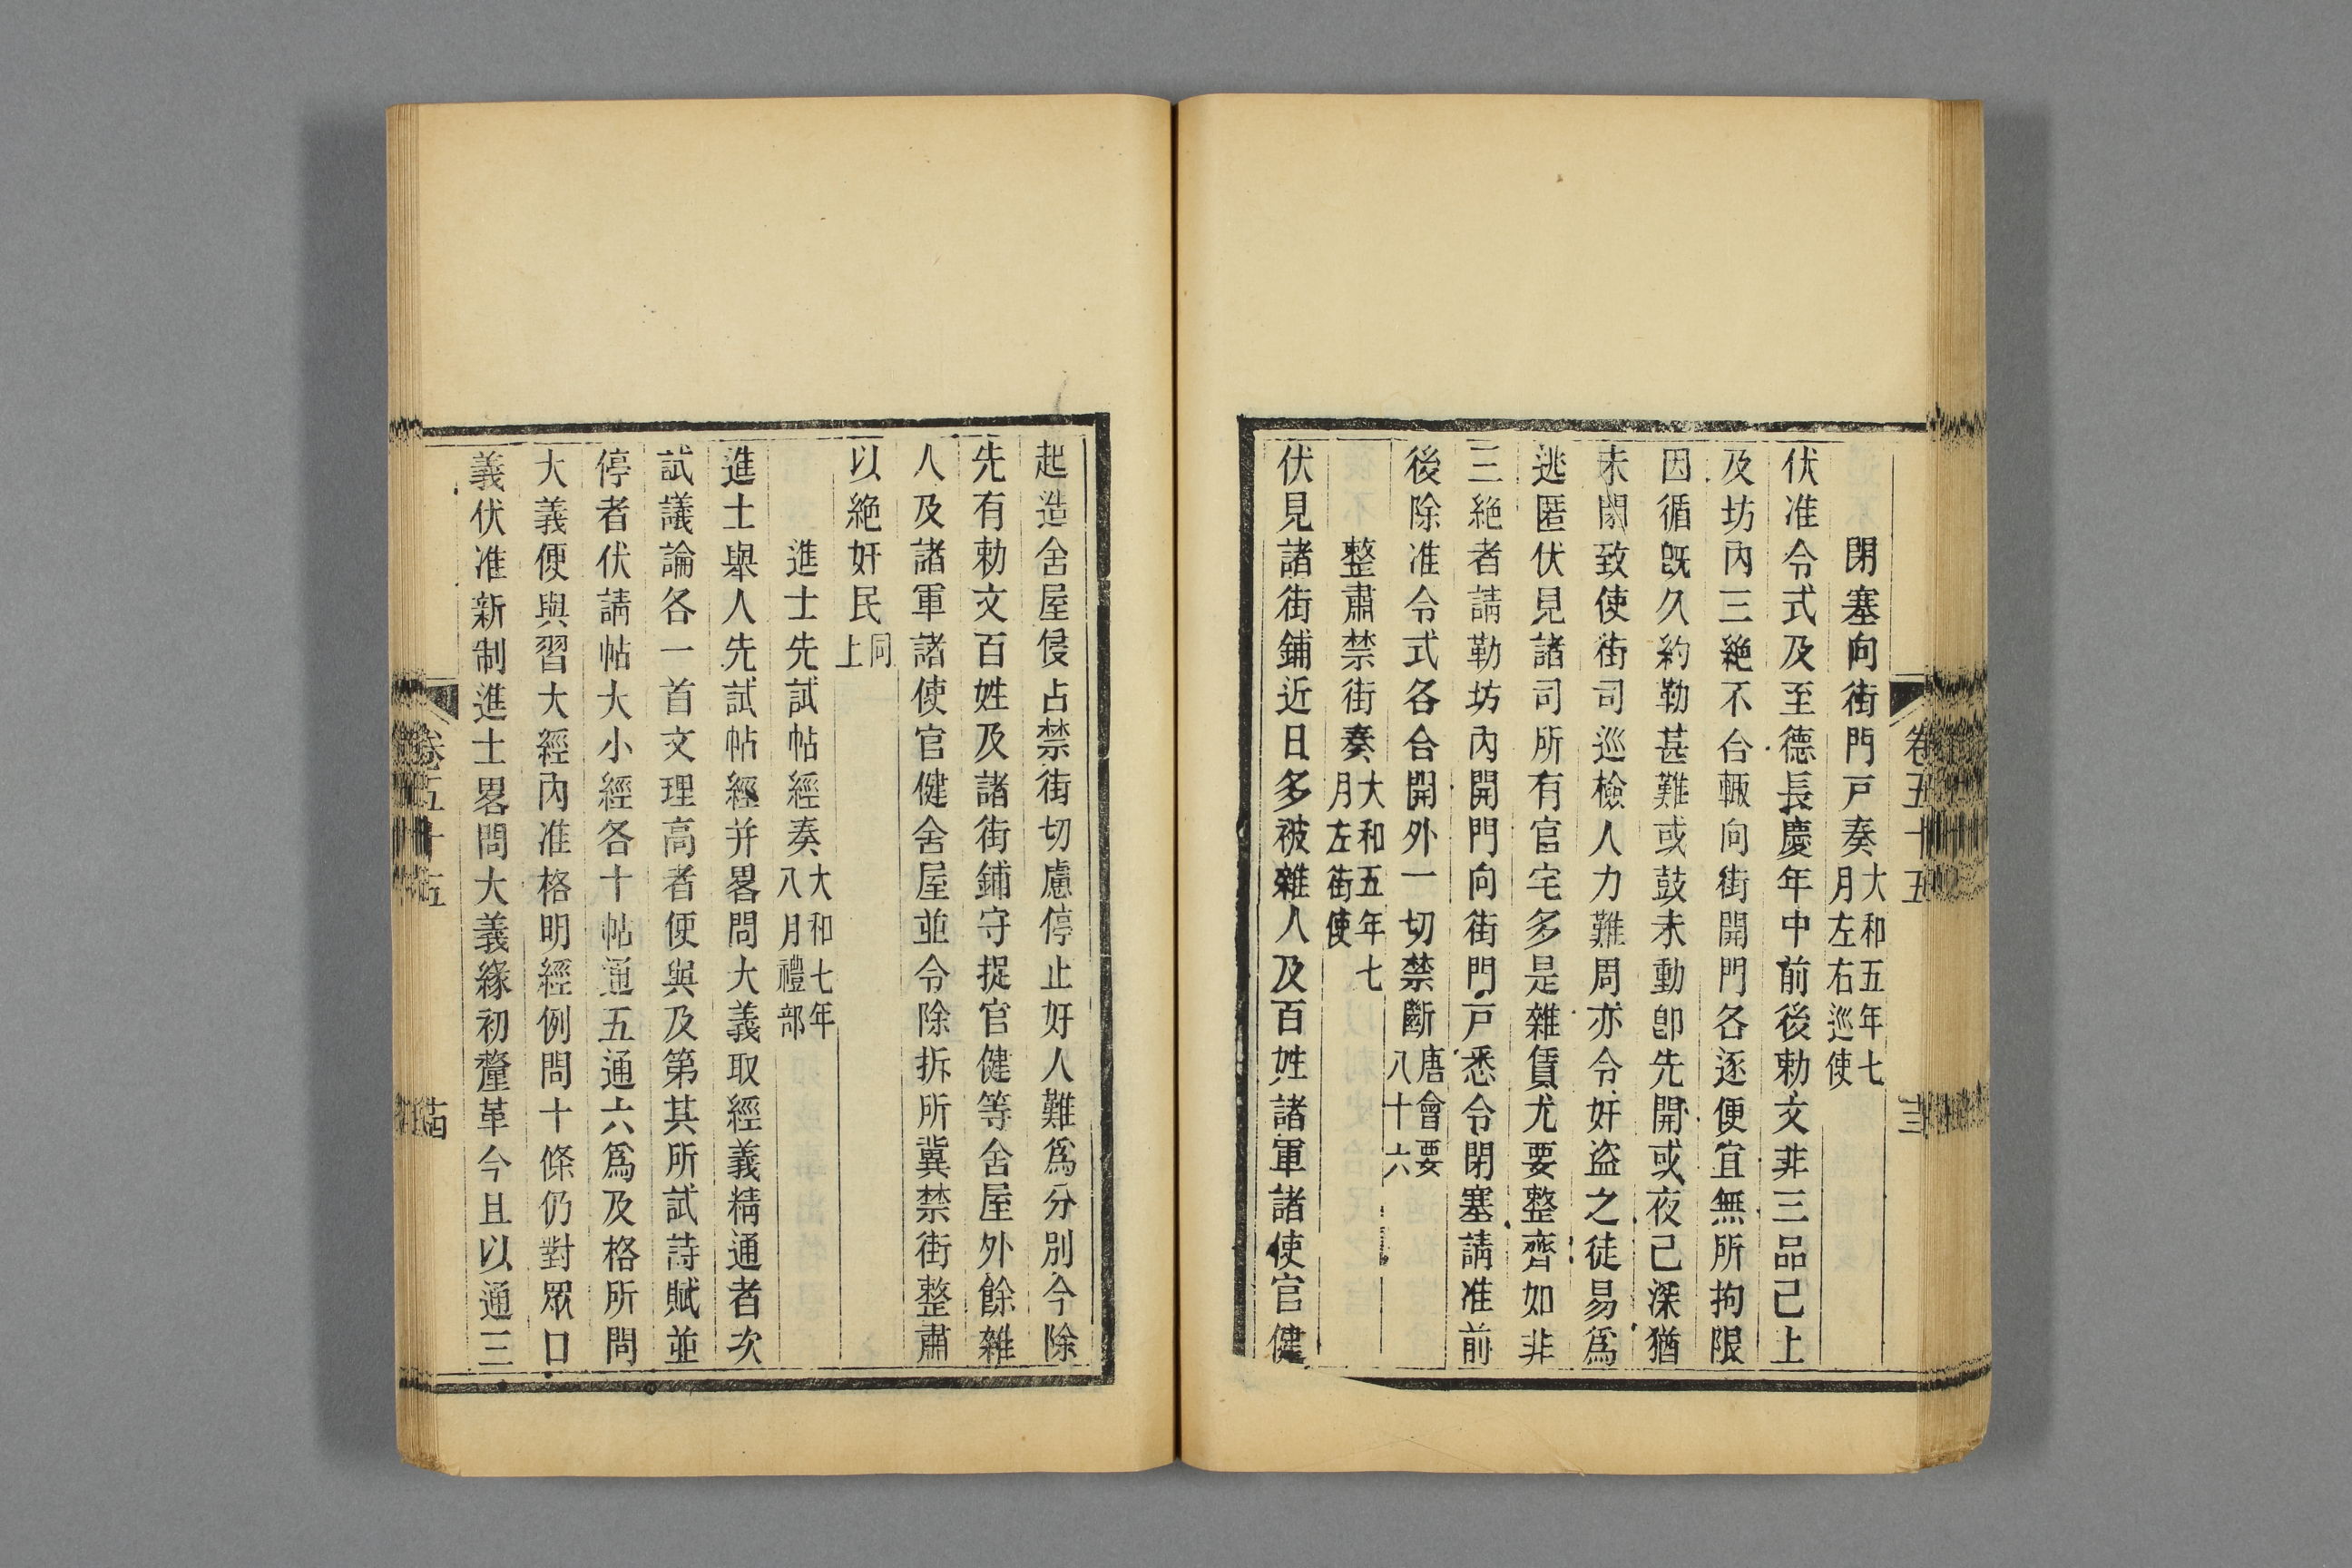 卷五十五
閉塞向街門戸奏大和五年七月左右巡使
伏准令式及至德長慶年中前後勅文非三品己上
及坊內三絶不合輙向街開門各逐便宜無所拘限
因循旣久約勒甚難或鼓未動卽先開或夜己深猶
未閉致使街司巡檢人力難周亦令奸盗之徒易爲
逃匿伏見諸司所有官宅多是雜賃尤要整齊如非
三絶者請勒坊內開門向街門戸悉令閉塞請准前
後除准令式各合開外一切禁斷唐會要八十六
整肅禁街奏大和五年七月左街使
伏見諸街鋪近日多被雜人及百姓諸軍諸使官健
起造舍屋侵占禁街切慮停止奸人難爲分別今除
先有勅文百姓及諸街鋪守捉官健等舍屋外餘雜
人及諸軍諸使官健舍屋並令除拆所冀禁街整肅
以絶奸民同上
進士先試帖經奏大和七年八月禮部
進士舉人先試帖經并畧問大義取經義精通者次
試議論各一首文理高者便與及第其所試詩賦並
停者伏請帖大小經各十帖通五通六爲及格所問
大義便與習大經內准格明經例問十條仍對眾口
義伏准新制進士畧問大義緣初釐革今且以通三
卷五十五